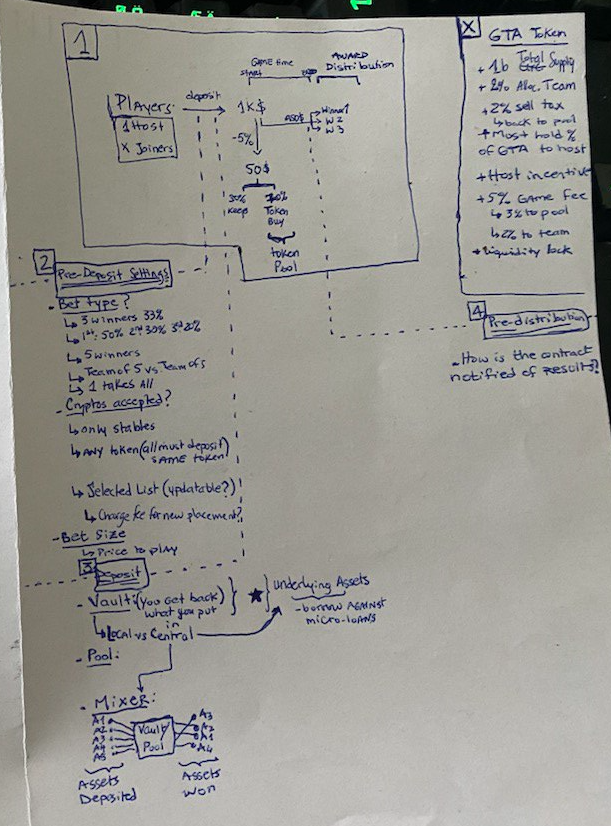 1
GAME time
START
END
AWARD
Distribution
Players:
deposit
1K$
950$
Winner1
W 2
W 3
1 Host
X Joiners
-5%
50$
30%
Keeps
Token
Buy
token
Pool
X
GTA Token
+ 1b Total Supply
+ 2% Alloc. Team
+ 2% sell tax
↳ back to pool
+ Most hold %
of GTA to host
+ Host incentive
+ 5% GAME Fee
↳ 3% to pool
↳ 2% to team
+ Liquidity lock
2
Pre-Deposit Settings
- Bet type?
↳ 3 winners 33%
↳ 1st: 50% 2nd 30% 3rd 20%
↳ 5 winners
↳ Team of 5 vs Team of 5
↳ 1 takes All
- Cryptos accepted?
↳ only stables
↳ ANY token (all must deposit
SAME token)
↳ Selected List (updatable?)
↳ Charge fee for new placement?
- Bet Size
↳ Price to play
4
Pre-distribution
- How is the contract
notified of results?
3
Deposit
- Vault: (you get back
what you put
in
↳ Local vs Central
★ Underlying Assets
- borrow AGAINST
micro-loans
- Pool:
- Mixer:
A1
A2
A3
A4
A5
Vault/
Pool
A3
A2
A1
A4
Assets
Deposited
Assets
Won